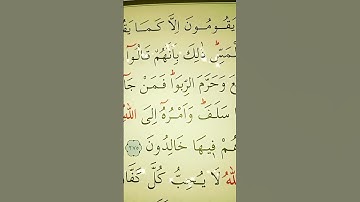 يَقُومُونَ اِلَّا كَمَا يَقُ
لْمَسِّ ذٰلِكَ بِاَنَّهُمْ قَالُٓوا
عَ وَحَرَّمَ الرِّبٰوا فَمَنْ جَٓا
سَلَفَ وَاَمْرُهُٓ اِلَى اللّٰهِ
هُمْ فِيهَا خَالِدُونَ ﴿٢٧٥﴾
للّٰهُ لَا يُحِبُّ كُلَّ كَفَّا